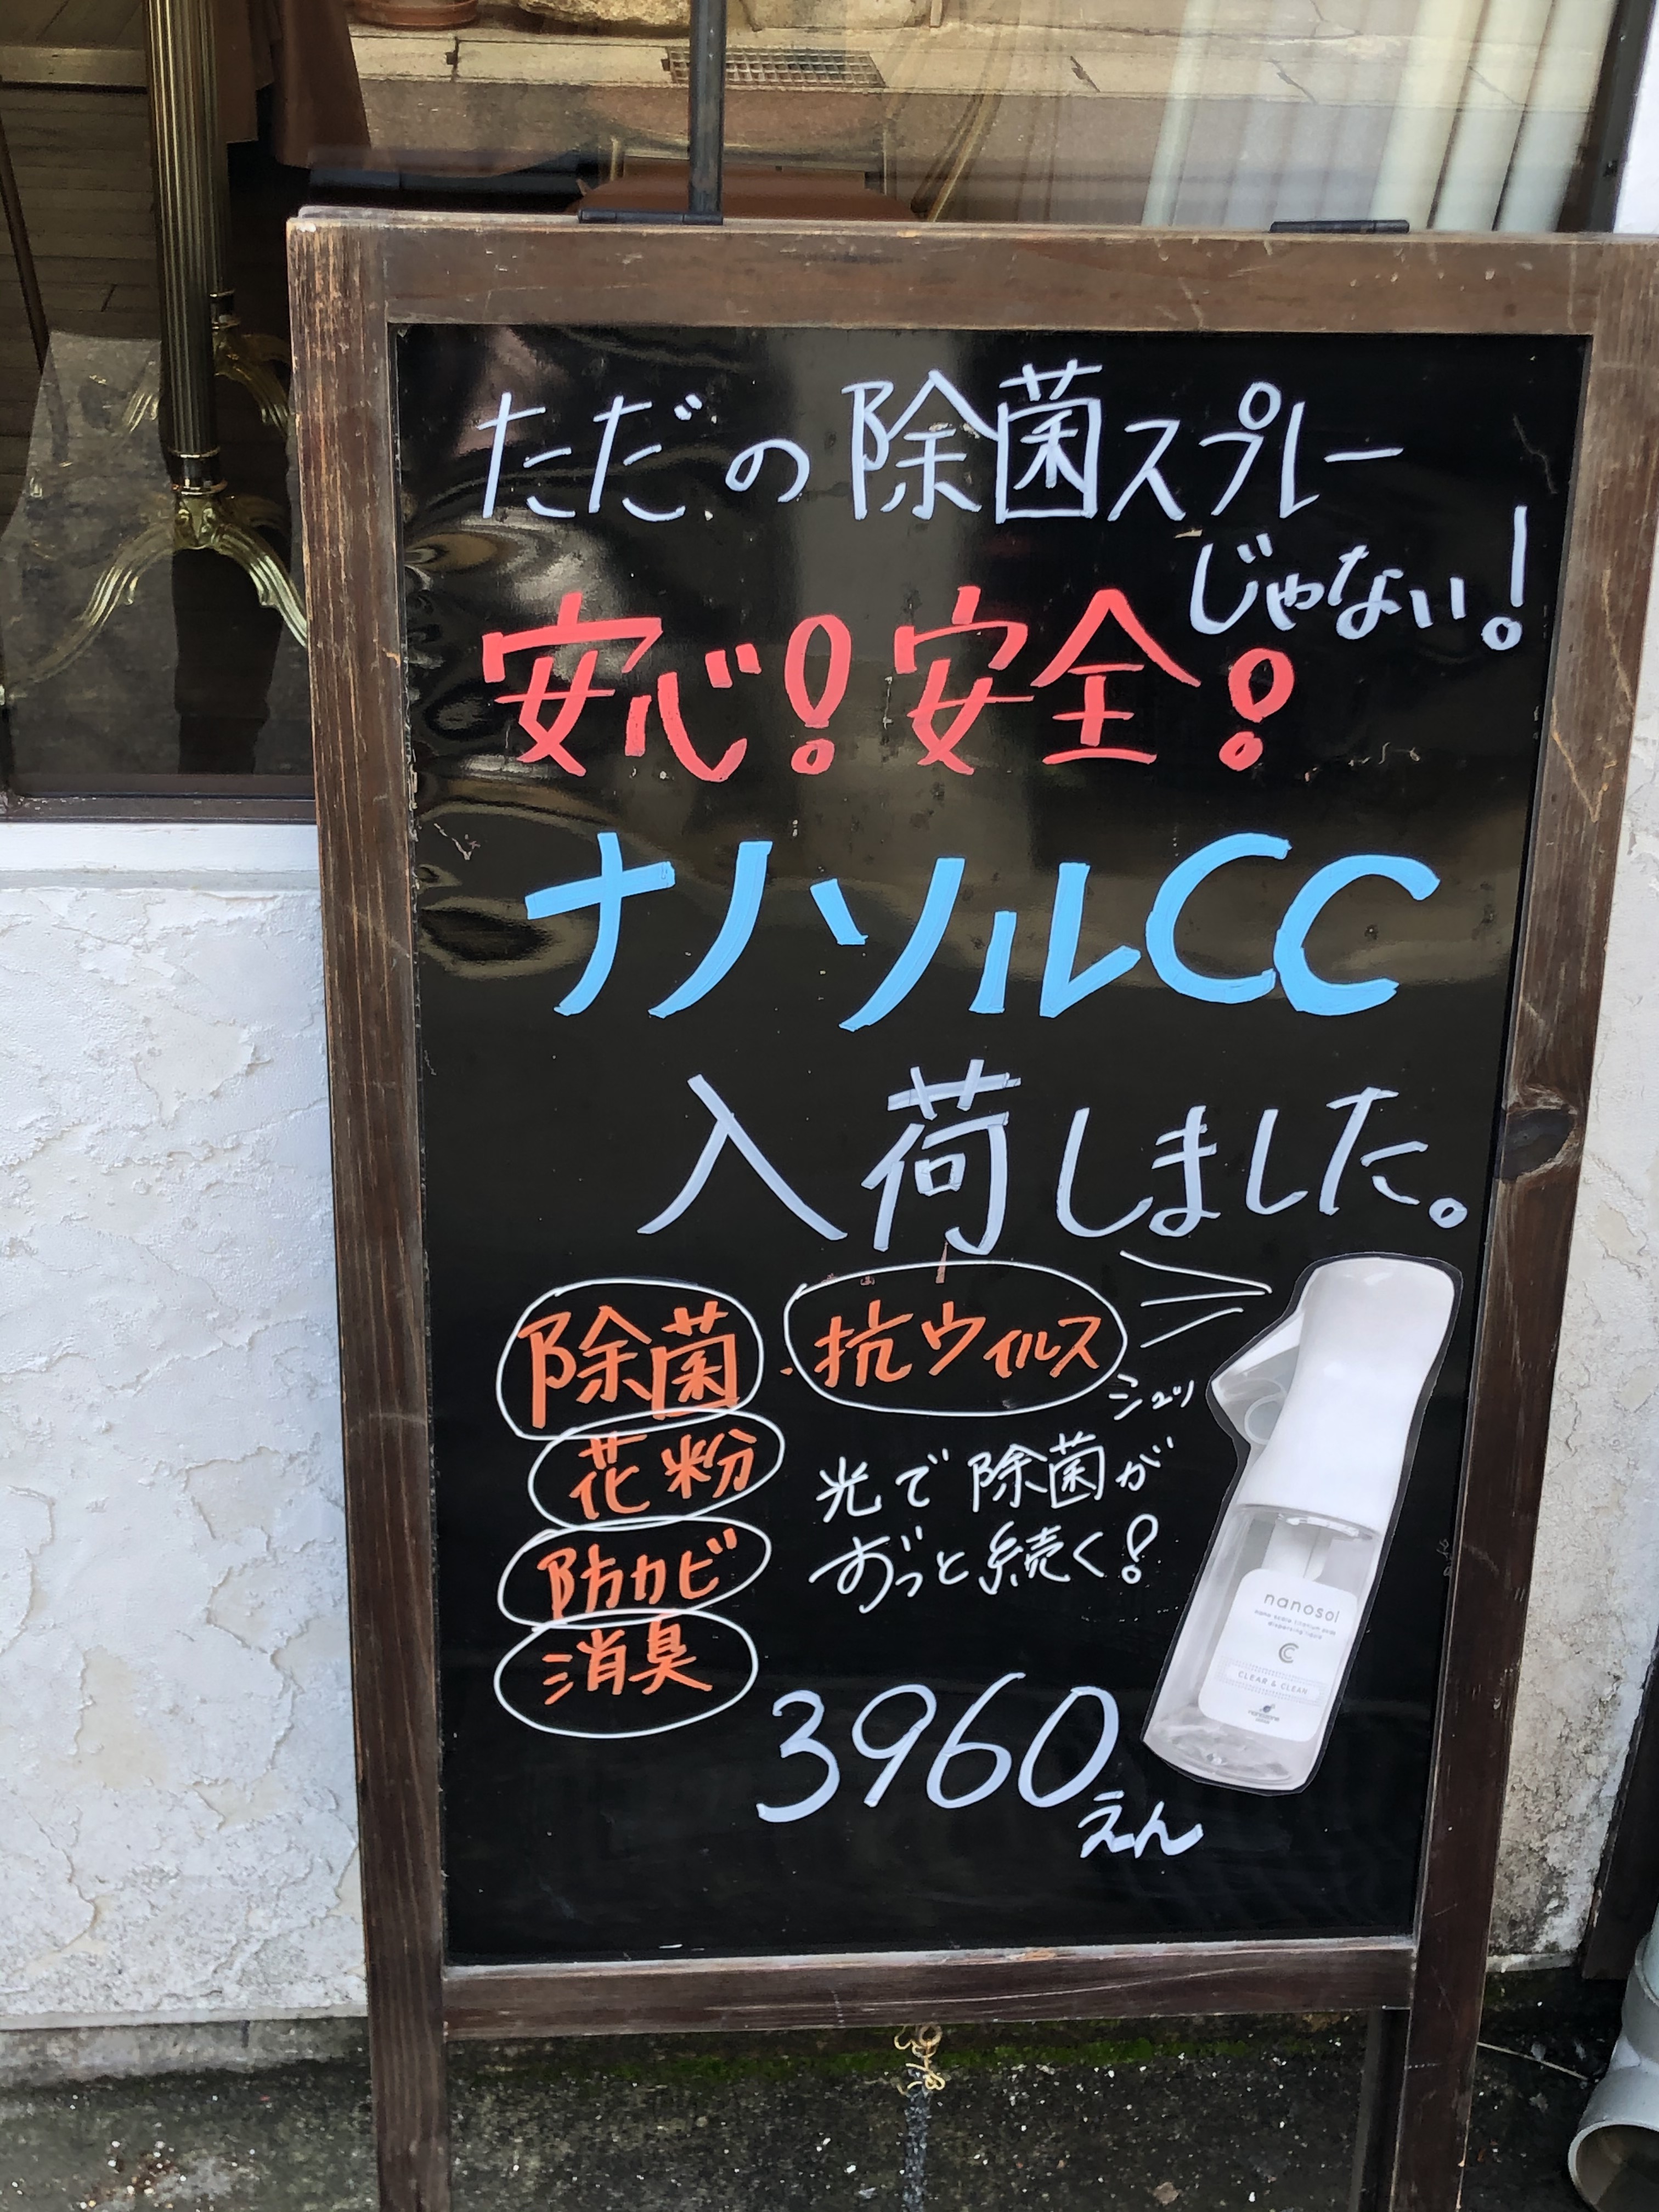 ただの除菌スプレー
じゃない!
安心!安全!
ナノソルCC
入荷しました。
除菌・抗ウィルス
シュッ
花粉
光で除菌が
防カビ
ずっと続く!
消臭
nanosol
CC
CLEAR & CLEAN
3960えん